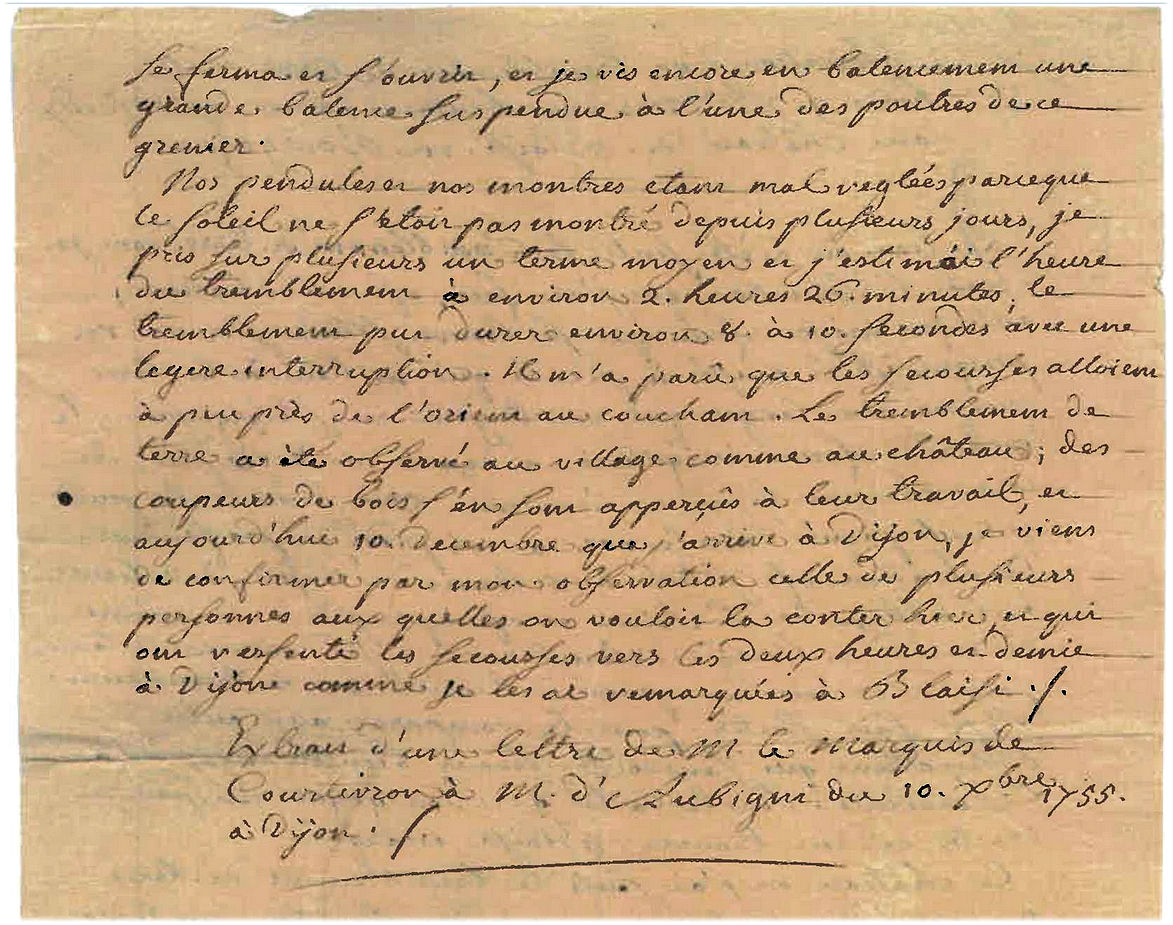 se ferma et s'ouvrir, et je vis encore en balencement une
grande balence suspendue à l'une des poutres de ce
grenier.
Nos pendules et nos montres etant mal reglées parceque
le soleil ne s'etoit pas montré depuis plusieurs jours, je
pris sur plusieurs un terme moyen et j'estimai l'heure
du tremblement à environ 2. heures 26. minutes, le
tremblement put durer environ 8. à 10. secondes avec une
legere interruption. Il m'a parû que les secousses alloient
à peu près de l'orient au couchant. Le tremblement de
terre a été observé au village comme au château; des
coupeurs de bois s'en sont apperçûs à leur travail, et
aujourd'hui 10. decembre que j'arrive à Dijon, je viens
de confirmer par mon observation celle de plusieurs
personnes aux quelles on vouloit la conter hier, et qui
ont ressenti les secousses vers les deux heures et demie
à Dijon comme je les ai remarquées à Blaisi ./.
Extrait d'une lettre de M le Marquis de
Courtivron à M. d'Aubigni du 10. Xbre 1755.
à Dijon . /